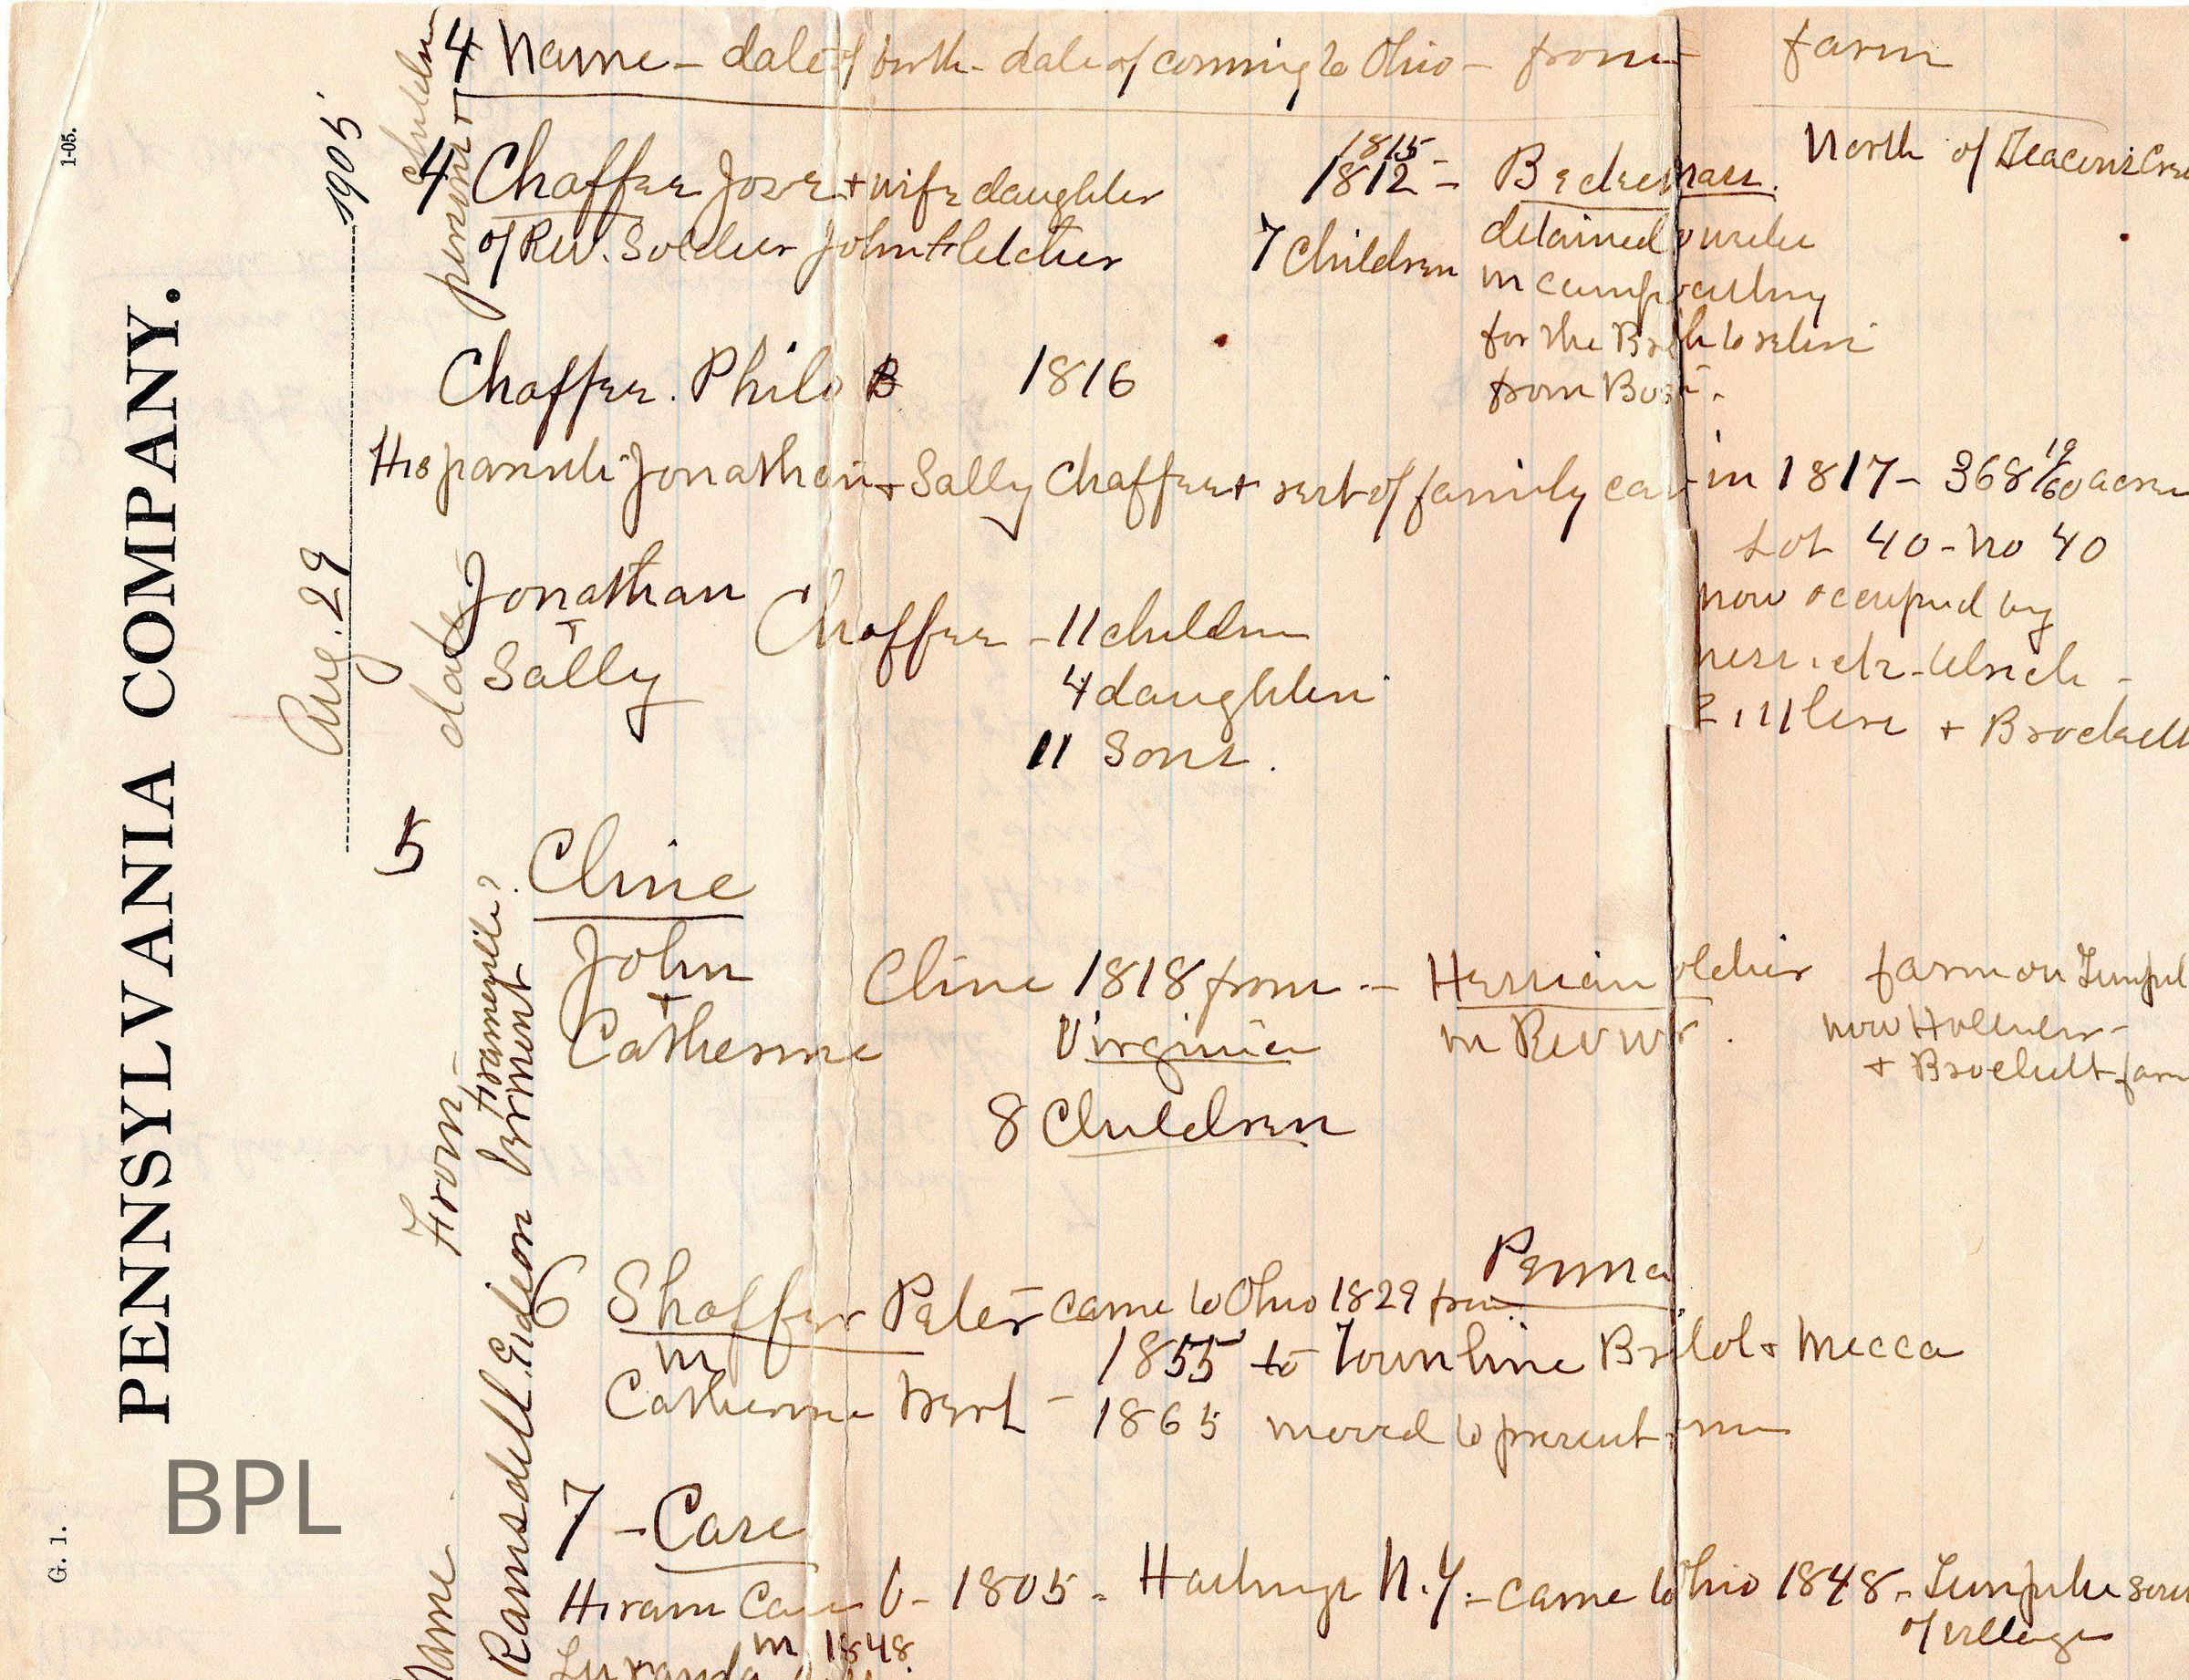 4 Name - date of birth - date of coming to Ohio - from farm
4 Chaffee Jose + wife daughter 1815 1812 - Becket Mass. North of Deacons
of Rev. Soldier John Fletcher 7 Children detained
in camp
for the to retire
from
Chaffee. Philo B 1816
His parents Jonathan + Sally Chaffee + rest of family in 1817 - 368 19/60 acres
Lot 40 - No 40
now occupied by
+ Brockett
Jonathan
+
Sally
Chaffee - 11 children
4 daughters
11 Sons.
5 Cline
John
+
Catherine
Cline 1818 from - Hessian soldier farm on
Virginia in Rev war. now
+ Brockett farm
8 Children
6 Shaffer Peter came to Ohio 1829 from Penna
m 1855 to Town line Bristol + Mecca
Catherine - 1865 moved to present
7 - Case
Hiram Case b - 1805 - Hastings N.Y. - came to Ohio 1848 - Turnpike south
of village
m 1848
PENNSYLVANIA COMPANY.
Aug. 29 1905
1-05.
G. 1.
children
person
date
From -
Name
Ramsdell. Gideon Vermont
BPL